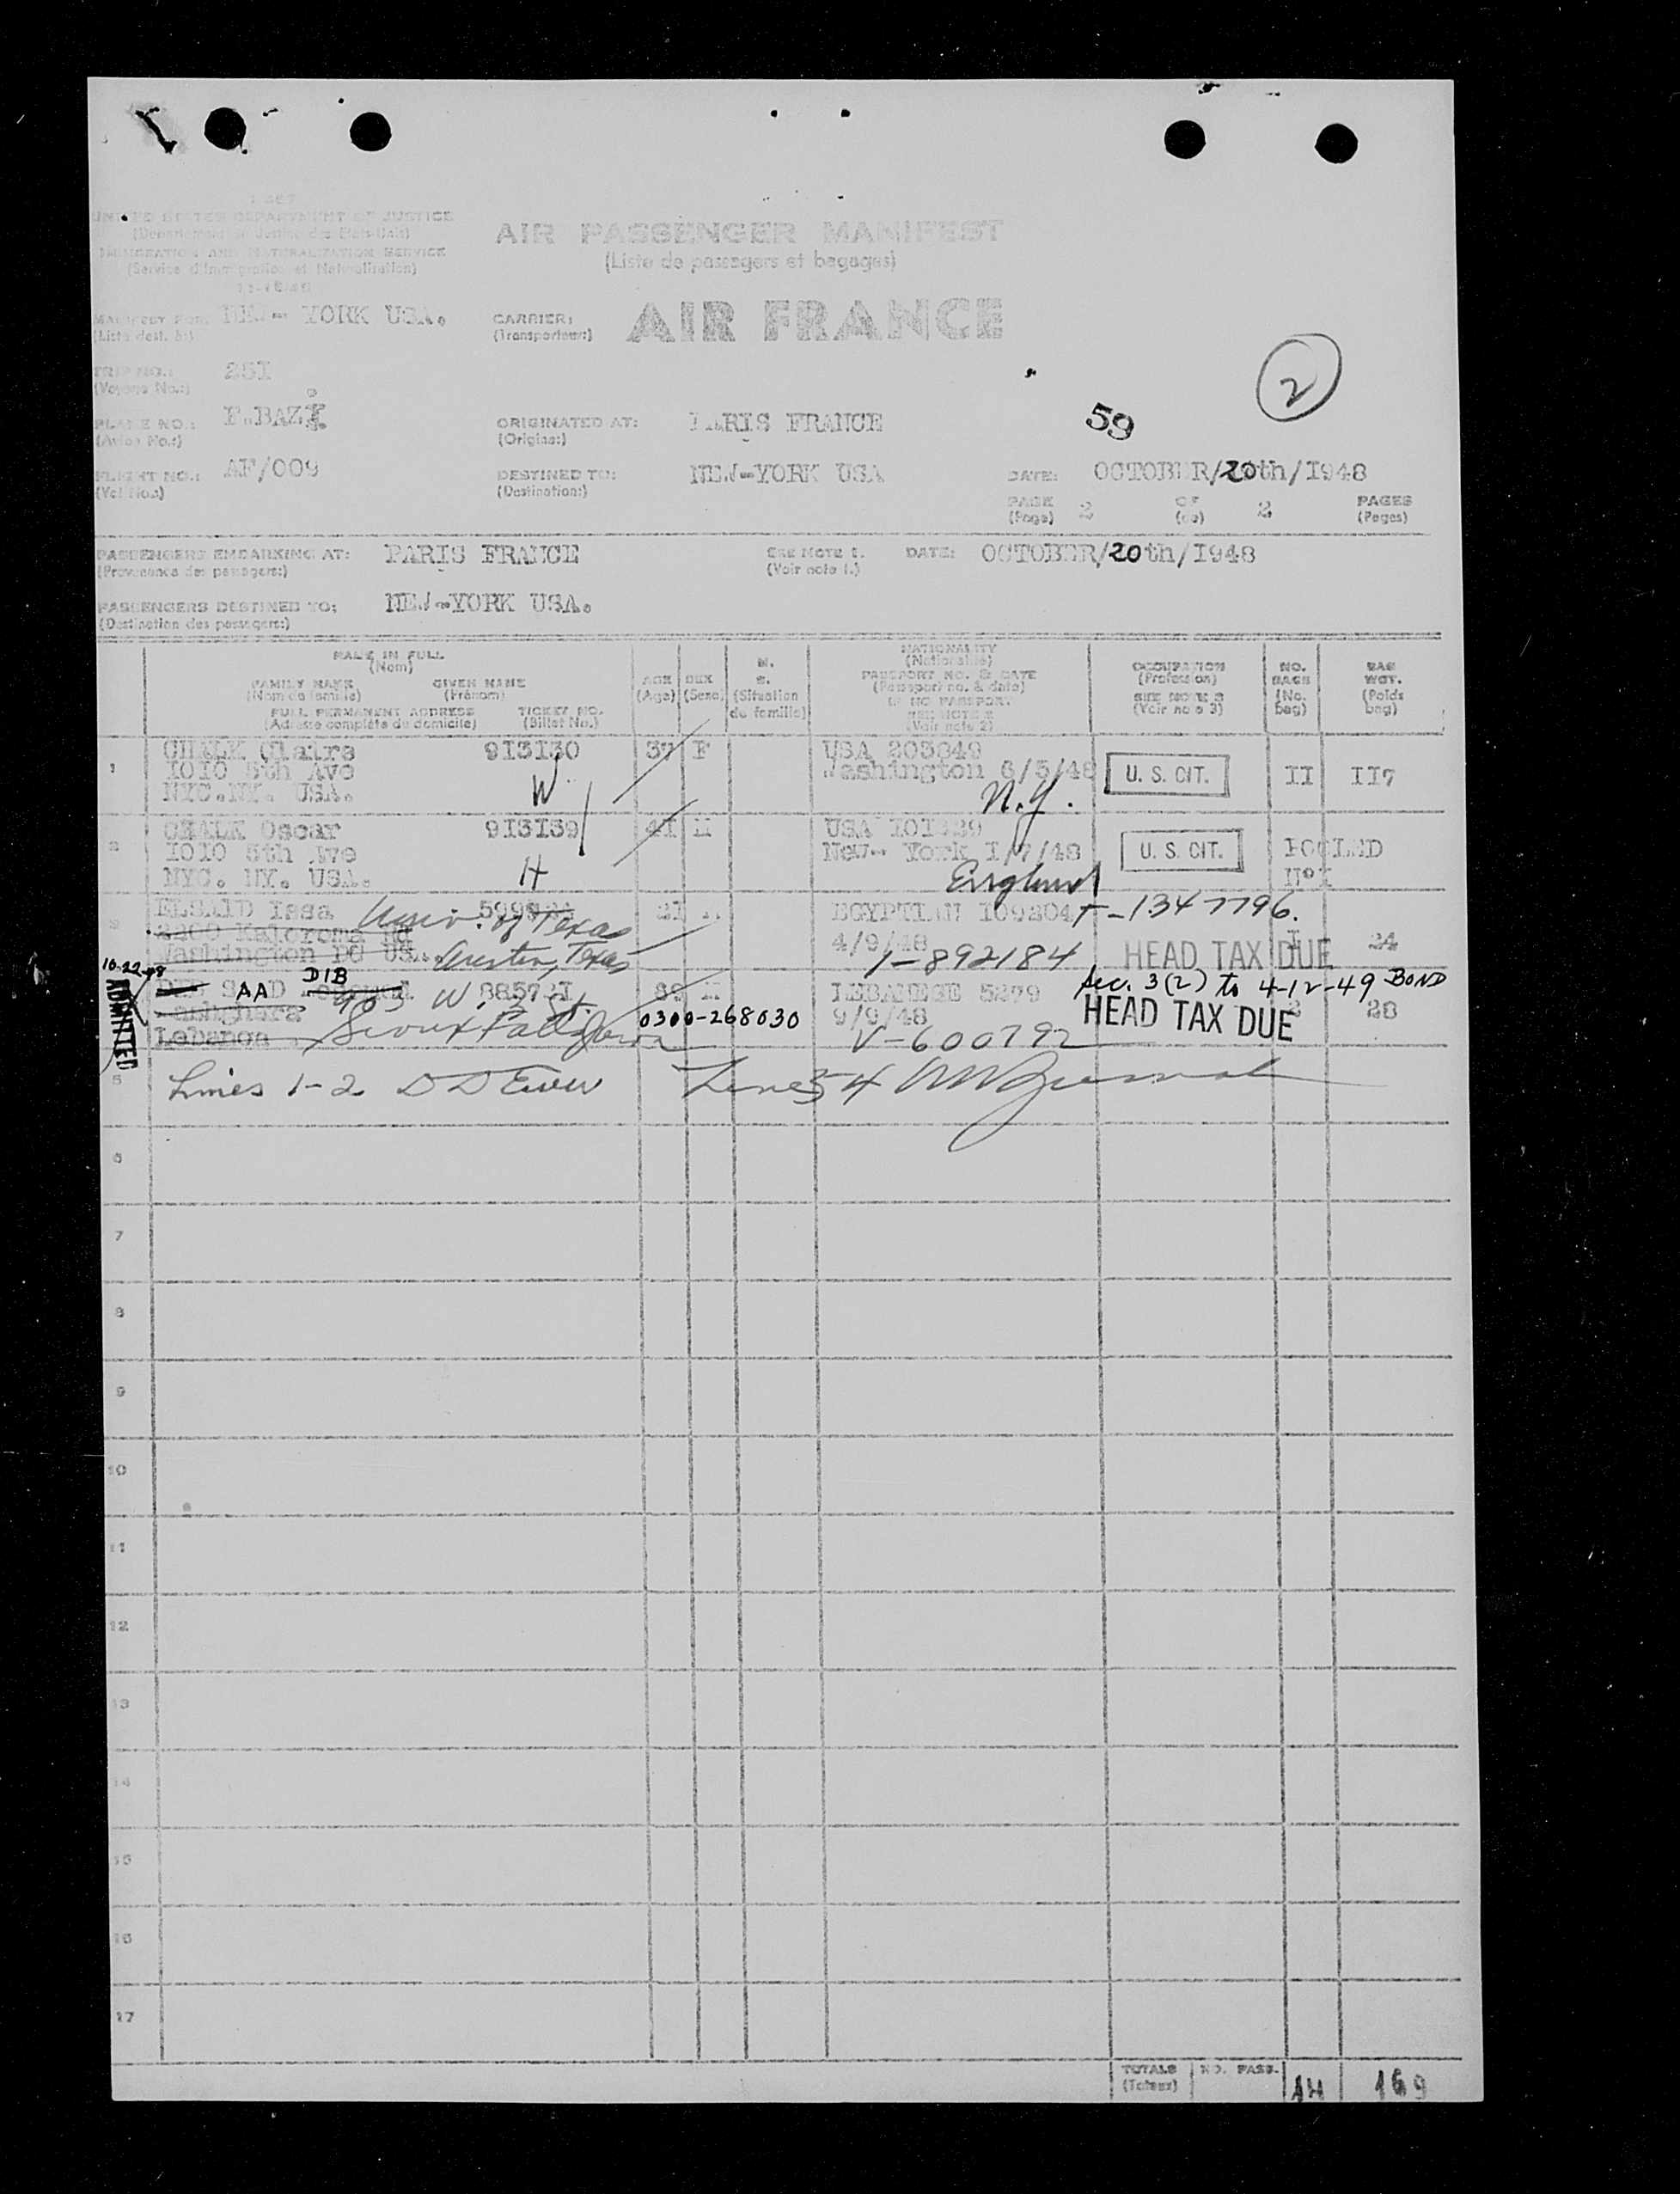 UNITED STATES DEPARTMENT OF JUSTICE
IMMIGRATION AND NATURALIZATION SERVICE
(Service d'Immigration et Naturalisation)
AIR PASSENGER MANIFEST
(Liste de passagers et bagages)
MANIFEST FOR: NEW- YORK USA.
(Liste dest. à:)
CARRIER: AIR FRANCE
(Transporteur:)
2
TRIP NO.: 25I
(Voyage No.:)
PLANE NO.: F.BAZ
(Avion No.:)
ORIGINATED AT: PARIS FRANCE
(Origine:)
59
FLIGHT NO.: AF/009
(Vol No.:)
DESTINED TO: NEW-YORK USA
(Destination:)
DATE: OCTOBER/20th/I948
PAGE 2 OF 2 PAGES
(Page) (de) (Pages)
PASSENGERS EMBARKING AT: PARIS FRANCE
(Provenance des passagers:)
SEE NOTE 1. DATE: OCTOBER/20th/I948
(Voir note 1.)
PASSENGERS DESTINED TO: NEW-YORK USA.
(Destination des passagers:)
NAME IN FULL
(Nom)
FAMILY NAME GIVEN NAME
(Nom de famille) (Prénom)
FULL PERMANENT ADDRESS TICKET NO.
(Adresse complète du domicile) (Billet No.)
AGE
(Age)
SEX
(Sexe)
M.
S.
(Situation
de famille)
NATIONALITY
(Nationalité)
PASSPORT NO. & DATE
(Passeport no. & date)
IF NO PASSPORT
SEE NOTE 2
(Voir note 2)
OCCUPATION
(Profession)
SEE NOTE 3
(Voir note 3)
NO.
BAGS
(No.
bag)
BAG
WGT.
(Poids
bag)
1 CHALK Claire 913130 37 F USA 205849
1010 5th Ave Washington 6/5/48 U. S. CIT. II II7
NYC.NY. USA. W N.Y.
2 CHALK Oscar 913139 41 M USA
1010 5th Ave New- York I/7/48 U. S. CIT. POOLED
NYC. NY. USA. H England
3 ELSAID Issa Univ. of Texas 21 M EGYPTIAN 109204 T-1347796.
Kalorama Rd 4/9/48 HEAD TAX DUE I 24
Washington DC USA. Austin, Texas 1-892184
10-22-48 ADMITTED
AA DIB 88572I M LEBANESE 5279 Sec. 3(2) to 4-12-49 BOND
903 W. 2 St. 0300-268030 9/9/48 HEAD TAX DUE 2 28
Lebanon V-600792
5 Lines 1-2 Lines 4
6
7
8
9
10
11
12
13
14
15
16
17
TOTALS NO. PASS. 14 169
(Totaux)